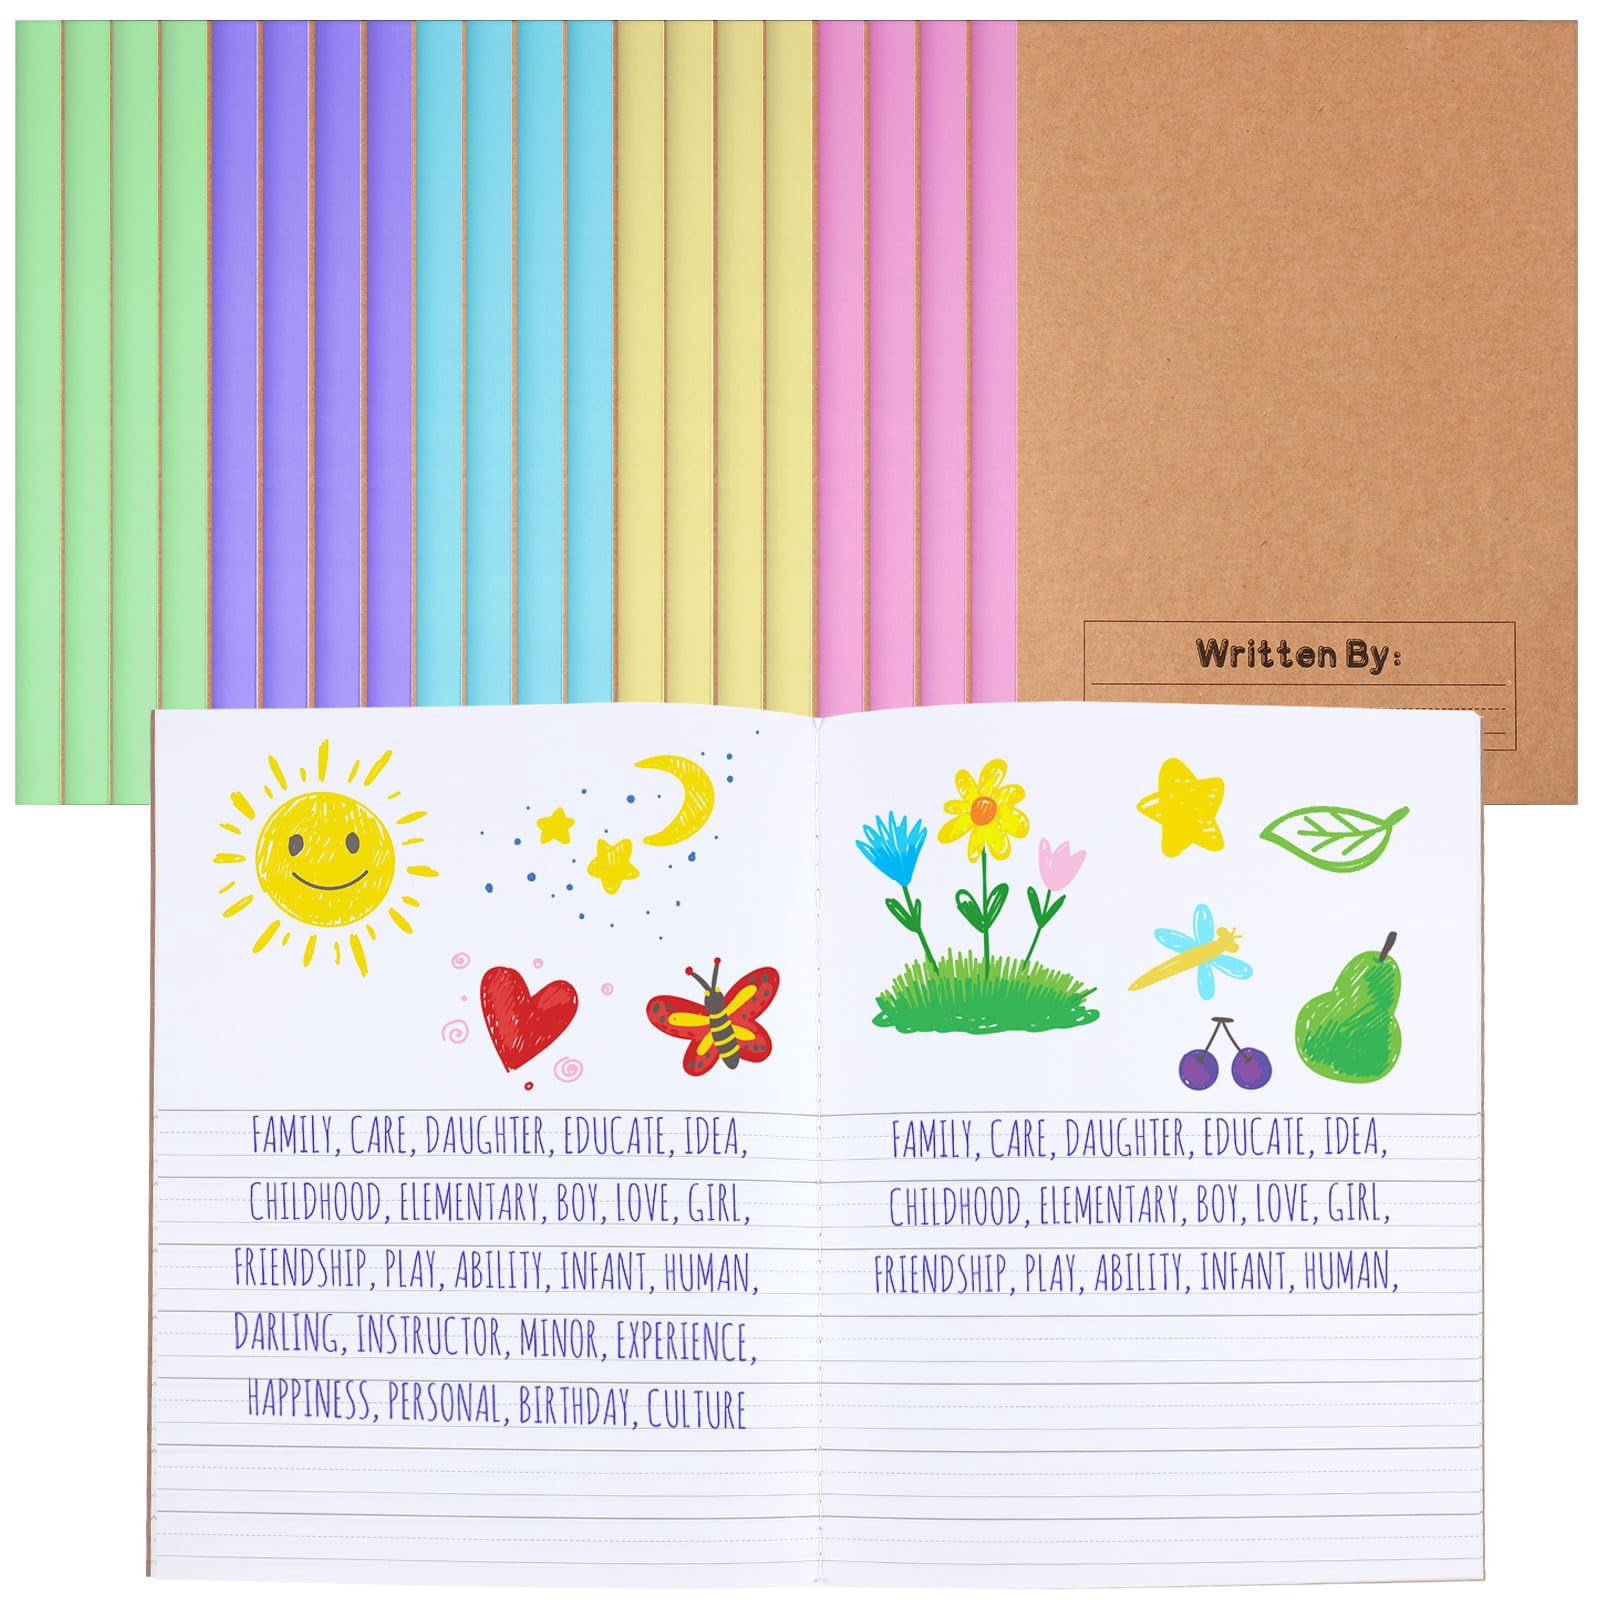 Written By:
FAMILY, CARE, DAUGHTER, EDUCATE, IDEA,
CHILDHOOD, ELEMENTARY, BOY, LOVE, GIRL,
FRIENDSHIP, PLAY, ABILITY, INFANT, HUMAN,
DARLING, INSTRUCTOR, MINOR, EXPERIENCE,
HAPPINESS, PERSONAL, BIRTHDAY, CULTURE
FAMILY, CARE, DAUGHTER, EDUCATE, IDEA,
CHILDHOOD, ELEMENTARY, BOY, LOVE, GIRL,
FRIENDSHIP, PLAY, ABILITY, INFANT, HUMAN,